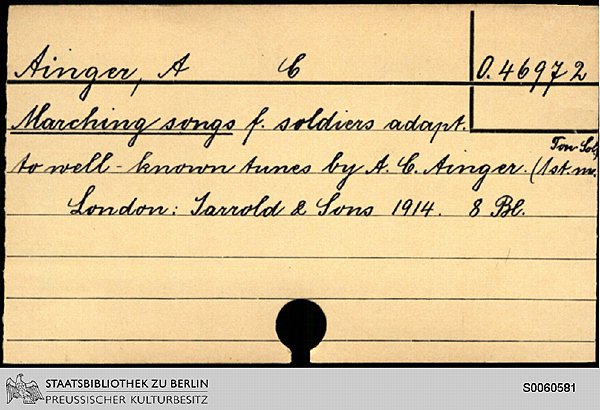 Ainger, A C
O. 46972
Marching songs f. soldiers adapt.
to well-known tunes by A. C. Ainger. (1st. m.
Ton Solf
London: Jarrold & Sons 1914. 8 Bl.
STAATSBIBLIOTHEK ZU BERLIN
PREUSSISCHER KULTURBESITZ
S0060581